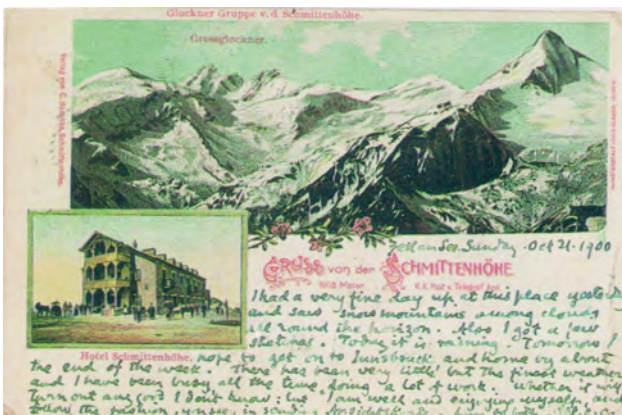 Gluckner Gruppe v. d. Schmittenhöhe.
Grossglockner.
Zell am See. Sunday. Oct 21. 1900
GRUSS von der SCHMITTENHÖHE.
1968 Meter. K. K. Post u. Telegraf Amt
I had a very fine day up at this place yesterday
and saw snow mountains among clouds
all round the horizon. Also I got a few
sketches. Today it is raining. Tomorrow I
Hotel Schmittenhöhe.
hope to get on to Innsbruck and home by about
the end of the week. There has been very little but the finest weather
and I have been busy all the time doing a lot of work. Whether it will
turn out any good I don't know; but I am well and enjoying myself, and
follow the fashion, you see, in sending